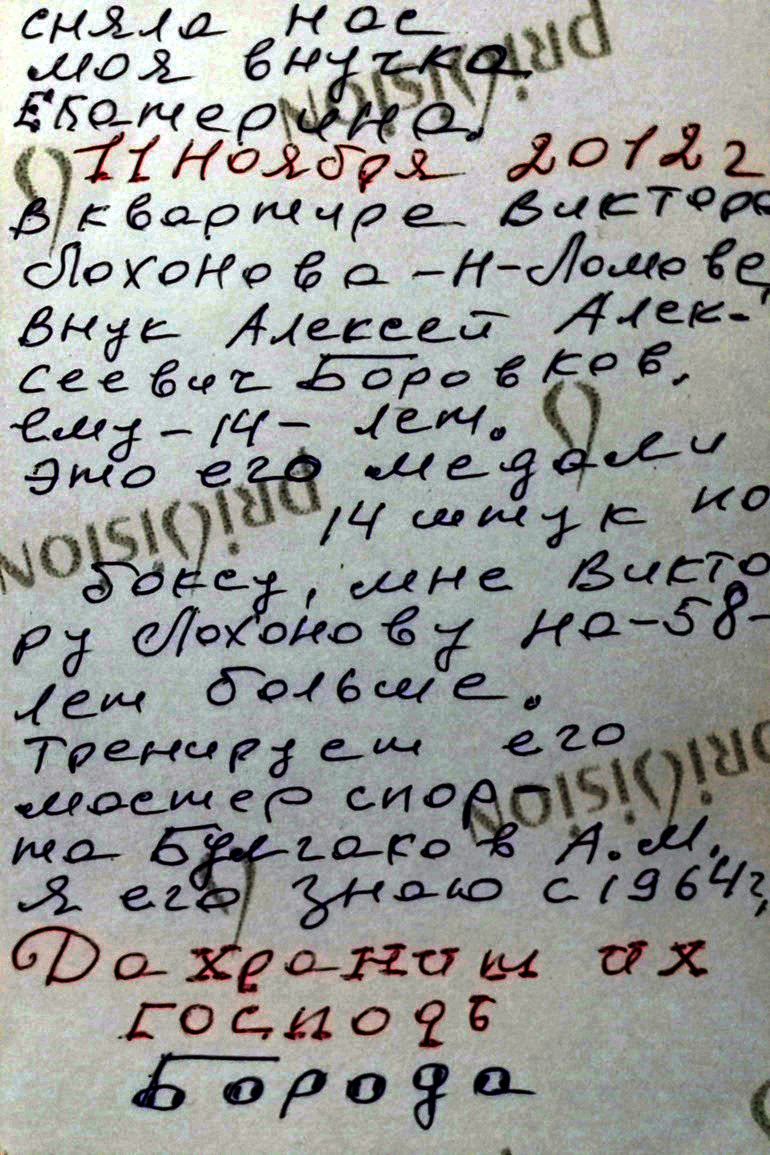 сняла нас
моя внучка
Екатерина.
11 ноября 2012 г
в квартире Виктора
Лохонова-Н-Ломовец
внук Алексей Алек-
сеевич Боровков.
ему-14-лет.
это его медали
14 штук по
боксу, мне Викто
ру Лохонову на-58-
лет больше.
тренирует его
мастер спор-
та Булгаков А.М.
я его знаю с 1964г,
Да хранит их
господь
Борода
priОision
priОision
priОision